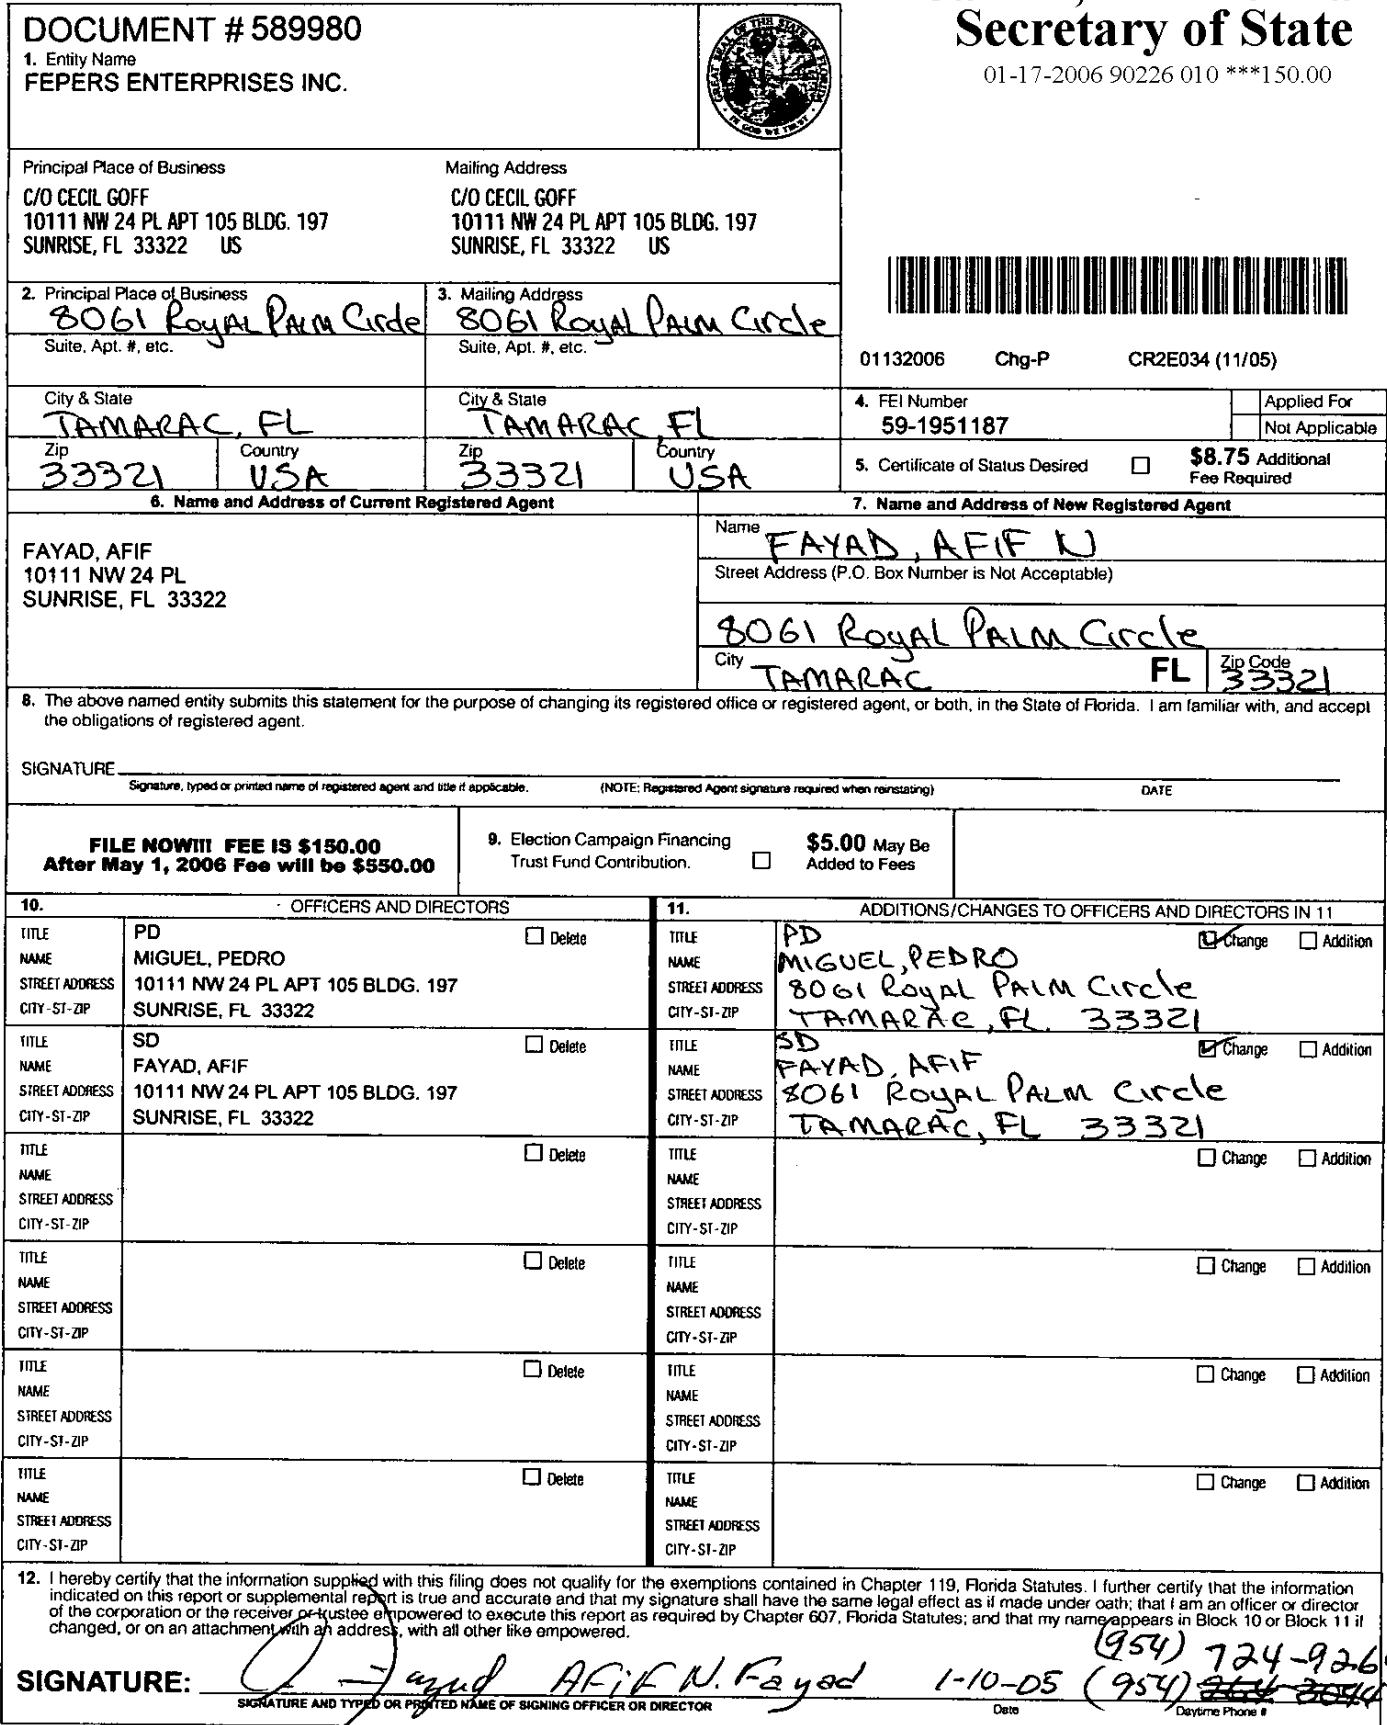 DOCUMENT # 589980
1. Entity Name
FEPERS ENTERPRISES INC.
GREAT SEAL OF THE STATE OF FLORIDA
IN GOD WE TRUST
Secretary of State
01-17-2006 90226 010 ***150.00
Principal Place of Business
C/O CECIL GOFF
10111 NW 24 PL APT 105 BLDG. 197
SUNRISE, FL 33322 US
Mailing Address
C/O CECIL GOFF
10111 NW 24 PL APT 105 BLDG. 197
SUNRISE, FL 33322 US
2. Principal Place of Business
8061 Royal Palm Circle
Suite, Apt. #, etc.
City & State
TAMARAC, FL
Zip
33321
Country
USA
3. Mailing Address
8061 Royal Palm Circle
Suite, Apt. #, etc.
City & State
TAMARAC, FL
Zip
33321
Country
USA
01132006 Chg-P CR2E034 (11/05)
4. FEI Number
59-1951187
Applied For
Not Applicable
5. Certificate of Status Desired
$8.75 Additional
Fee Required
6. Name and Address of Current Registered Agent
FAYAD, AFIF
10111 NW 24 PL
SUNRISE, FL 33322
7. Name and Address of New Registered Agent
Name FAYAD, AFIF N
Street Address (P.O. Box Number is Not Acceptable)
8061 Royal Palm Circle
City TAMARAC FL Zip Code 33321
8. The above named entity submits this statement for the purpose of changing its registered office or registered agent, or both, in the State of Florida. I am familiar with, and accept
the obligations of registered agent.
SIGNATURE
Signature, typed or printed name of registered agent and title if applicable. (NOTE: Registered Agent signature required when reinstating) DATE
FILE NOW!!! FEE IS $150.00
After May 1, 2006 Fee will be $550.00
9. Election Campaign Financing
Trust Fund Contribution.
$5.00 May Be
Added to Fees
10. OFFICERS AND DIRECTORS
TITLE PD Delete
NAME MIGUEL, PEDRO
STREET ADDRESS 10111 NW 24 PL APT 105 BLDG. 197
CITY-ST-ZIP SUNRISE, FL 33322
TITLE SD Delete
NAME FAYAD, AFIF
STREET ADDRESS 10111 NW 24 PL APT 105 BLDG. 197
CITY-ST-ZIP SUNRISE, FL 33322
TITLE Delete
NAME
STREET ADDRESS
CITY-ST-ZIP
TITLE Delete
NAME
STREET ADDRESS
CITY-ST-ZIP
TITLE Delete
NAME
STREET ADDRESS
CITY-ST-ZIP
TITLE Delete
NAME
STREET ADDRESS
CITY-ST-ZIP
11. ADDITIONS/CHANGES TO OFFICERS AND DIRECTORS IN 11
TITLE PD Change Addition
NAME MIGUEL, PEDRO
STREET ADDRESS 8061 Royal Palm Circle
CITY-ST-ZIP TAMARAC, FL. 33321
TITLE SD Change Addition
NAME FAYAD, AFIF
STREET ADDRESS 8061 Royal Palm Circle
CITY-ST-ZIP TAMARAC, FL 33321
TITLE Change Addition
NAME
STREET ADDRESS
CITY-ST-ZIP
TITLE Change Addition
NAME
STREET ADDRESS
CITY-ST-ZIP
TITLE Change Addition
NAME
STREET ADDRESS
CITY-ST-ZIP
TITLE Change Addition
NAME
STREET ADDRESS
CITY-ST-ZIP
12. I hereby certify that the information supplied with this filing does not qualify for the exemptions contained in Chapter 119, Florida Statutes. I further certify that the information
indicated on this report or supplemental report is true and accurate and that my signature shall have the same legal effect as if made under oath; that I am an officer or director
of the corporation or the receiver or trustee empowered to execute this report as required by Chapter 607, Florida Statutes; and that my name appears in Block 10 or Block 11 if
changed, or on an attachment with an address, with all other like empowered.
(954) 724-926
SIGNATURE: Fayad AFIF N. Fayad 1-10-05 (954)
SIGNATURE AND TYPED OR PRINTED NAME OF SIGNING OFFICER OR DIRECTOR Date Daytime Phone #